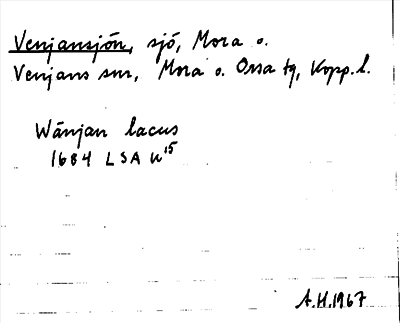 Venjansjön, sjö, Mora o.
Venjans snr, Mora o. Orsa tg, Kopp. l.
Wänjan lacus
1684 LSA n15
A.H. 1967